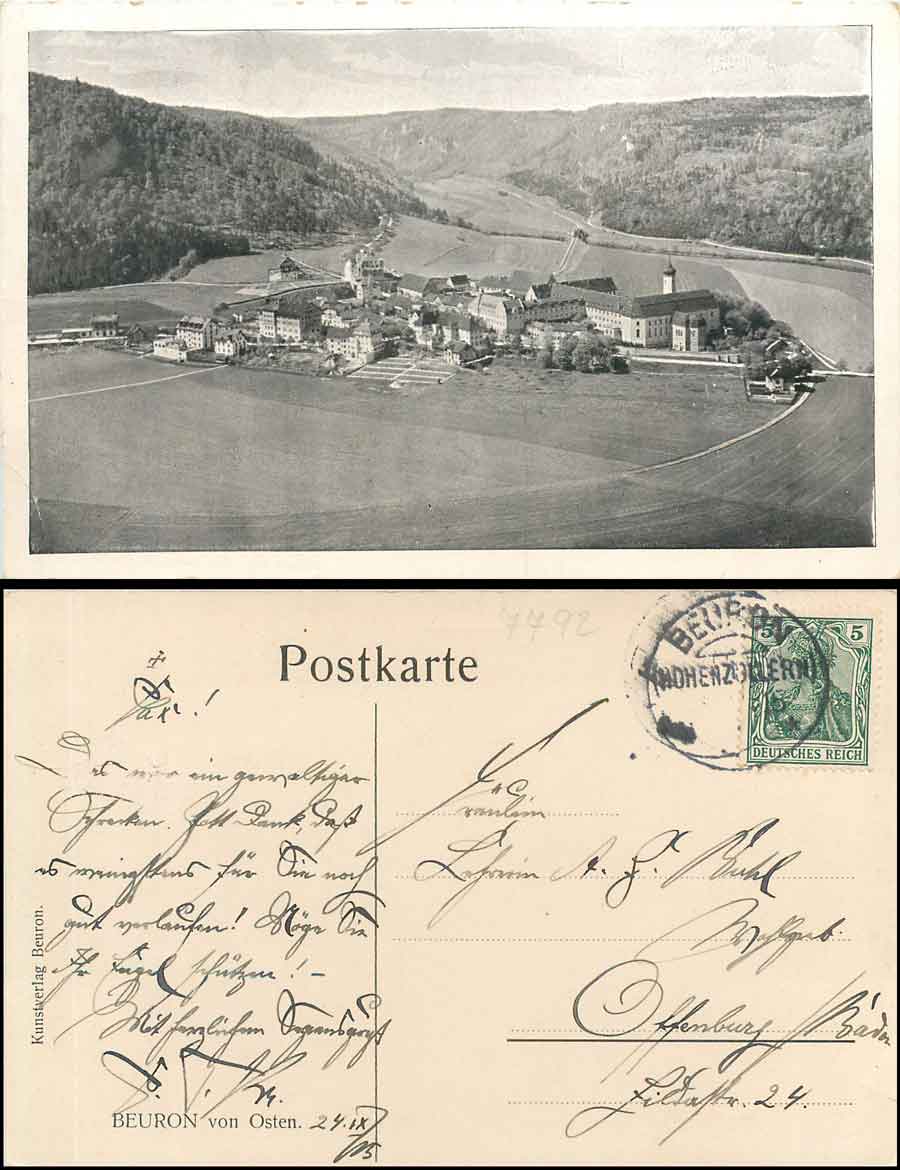 7792
Postkarte
BEURON
(HOHENZOLLERN)
5 5
DEUTSCHES REICH
+
Pax!
Das war ein gewaltiger
Schrecken. Gott Dank, daß
es wenigstens für Sie noch
gut verlaufen! Möge Sie
Ihr Engel schützen! –
Mit herzlichem Segensgruß
Kunstverlag Beuron.
BEURON von Osten.
24.IX
Fräulein
Lehrerin A. Buhl
Wohlgeb.
Offenburg / Baden
Hildastr. 24.